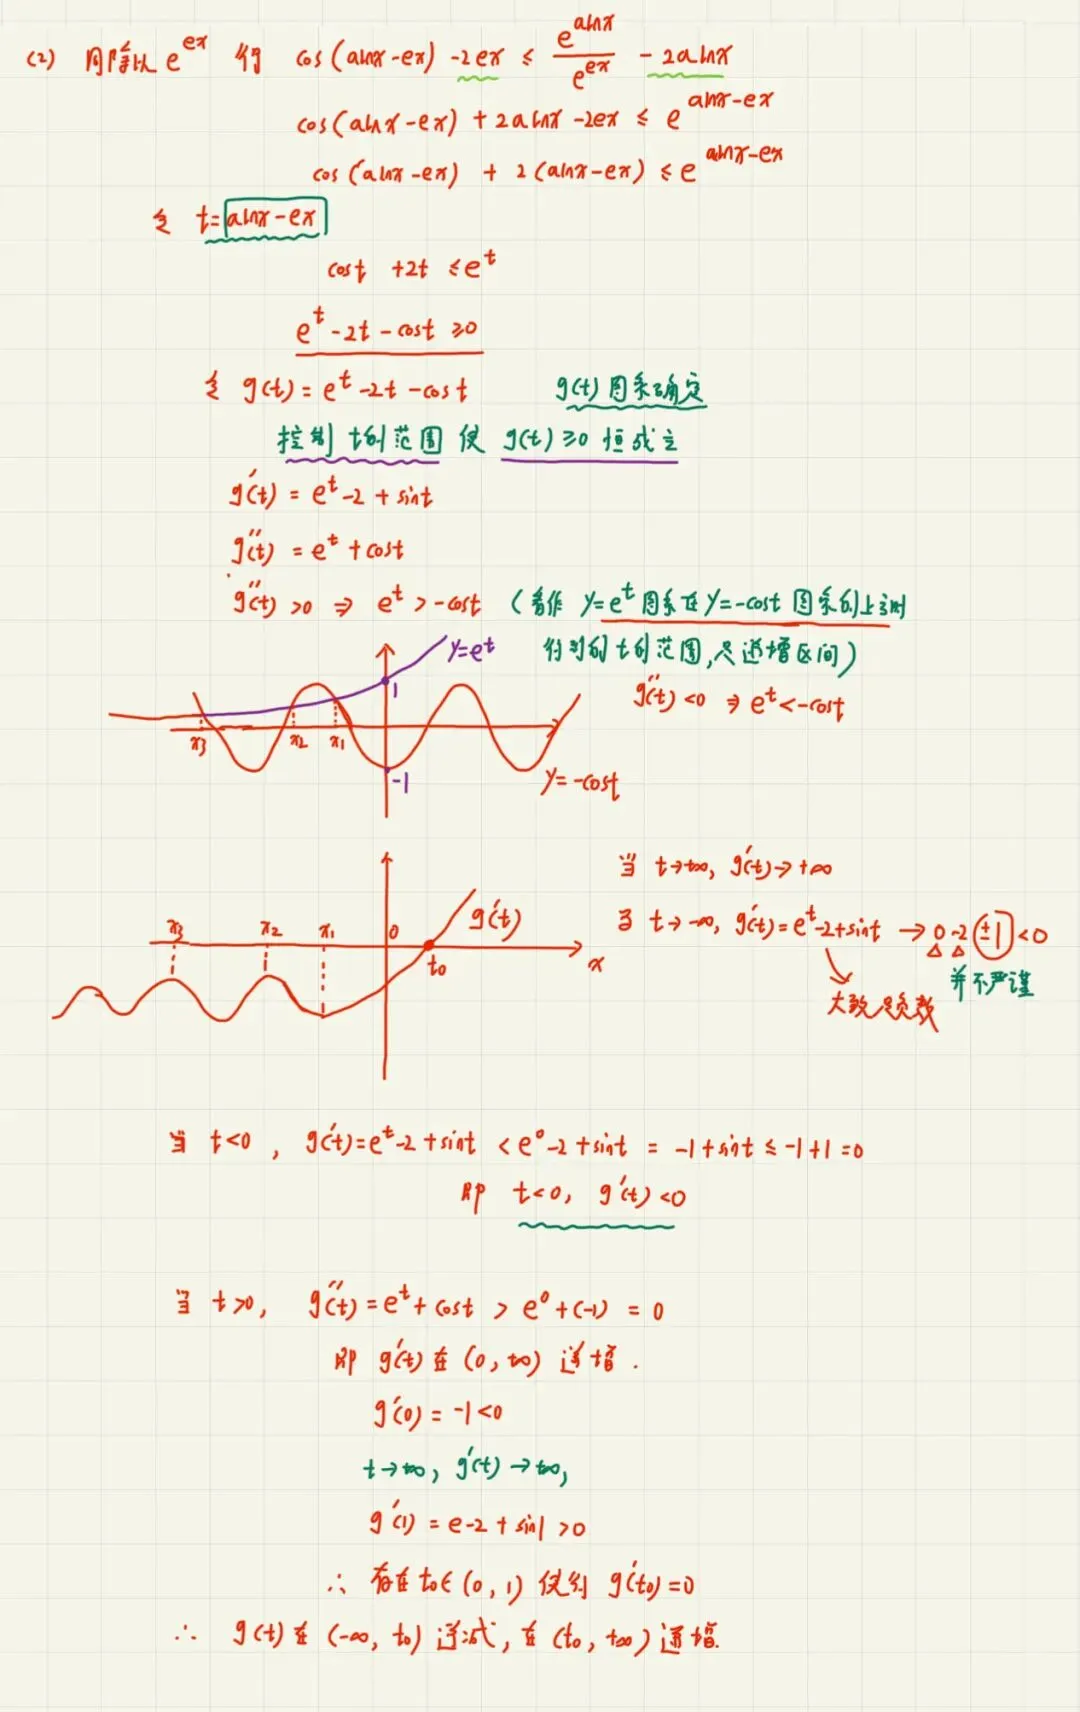 (2) 同除以 e^{ex} 得 cos(alnx-ex) -2ex ≤ e^{alnx}/e^{ex} - 2alnx
cos(alnx-ex) + 2alnx -2ex ≤ e^{alnx-ex}
cos(alnx-ex) + 2(alnx-ex) ≤ e^{alnx-ex}
令 t=alnx-ex
cost +2t ≤ e^t
e^t -2t -cost ≥0
令 g(t) = e^t -2t -cost g(t)图象确定
控制 t的范围 使 g(t)≥0 恒成立
g'(t) = e^t -2 + sint
g''(t) = e^t + cost
g''(t) >0 ⇒ e^t > -cost (看作 y=e^t图象在y=-cost图象的上方时
得到的t的范围,是递增区间)
y=e^t
g''(t) <0 ⇒ e^t < -cost
1
x3 x2 x1
-1
y=-cost
当 t→+∞, g'(t)→+∞
当 t→-∞, g'(t)=e^t-2+sint → 0-2±1<0
大致是负数
并不严谨
x3 x2 x1 0 g'(t)
t0 x
当 t<0 , g'(t)=e^t-2+sint < e^0-2+sint = -1+sint ≤ -1+1=0
即 t<0, g'(t)<0
当 t>0, g''(t) = e^t + cost > e^0+(-1) = 0
即 g'(t) 在 (0,+∞) 递增.
g'(0) = -1<0
t→+∞, g'(t)→+∞,
g'(1) = e-2+sin1 >0
∴ 存在 t0∈(0,1) 使得 g'(t0)=0
∴ g(t) 在 (-∞, t0) 递减, 在 (t0, +∞) 递增.